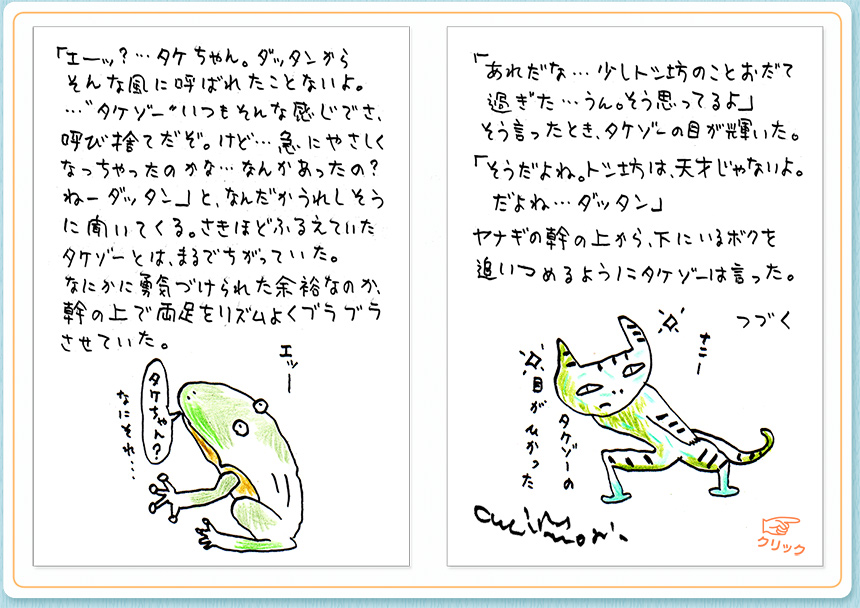 「エーッ?…タケちゃん。ダッタンから
そんな風に呼ばれたことないよ。
…"タケゾー"いつもそんな感じでさ、
呼び捨てだぞ。けど…急にやさしく
なっちゃったのかな…なんかあったの?
ねーダッタン」と、なんだかうれしそう
に聞いてくる。さきほどふるえていた
タケゾーとは、まるでちがっていた。
なにかに勇気づけられた余裕なのか、
幹の上で両足をリズムよくブラブラ
させていた。
エッー
タケちゃん?
なにそれ…
「あれだな…少しトン坊のことおだて
過ぎた…うん。そう思ってるよ」
そう言ったとき、タケゾーの目が輝いた。
「そうだよね。トン坊は、天才じゃないよ。
だよね…ダッタン」
ヤナギの幹の上から、下にいるボクを
追いつめるようにタケゾーは言った。
つづく
ナニー
タケゾーの
目がひかった
クリック